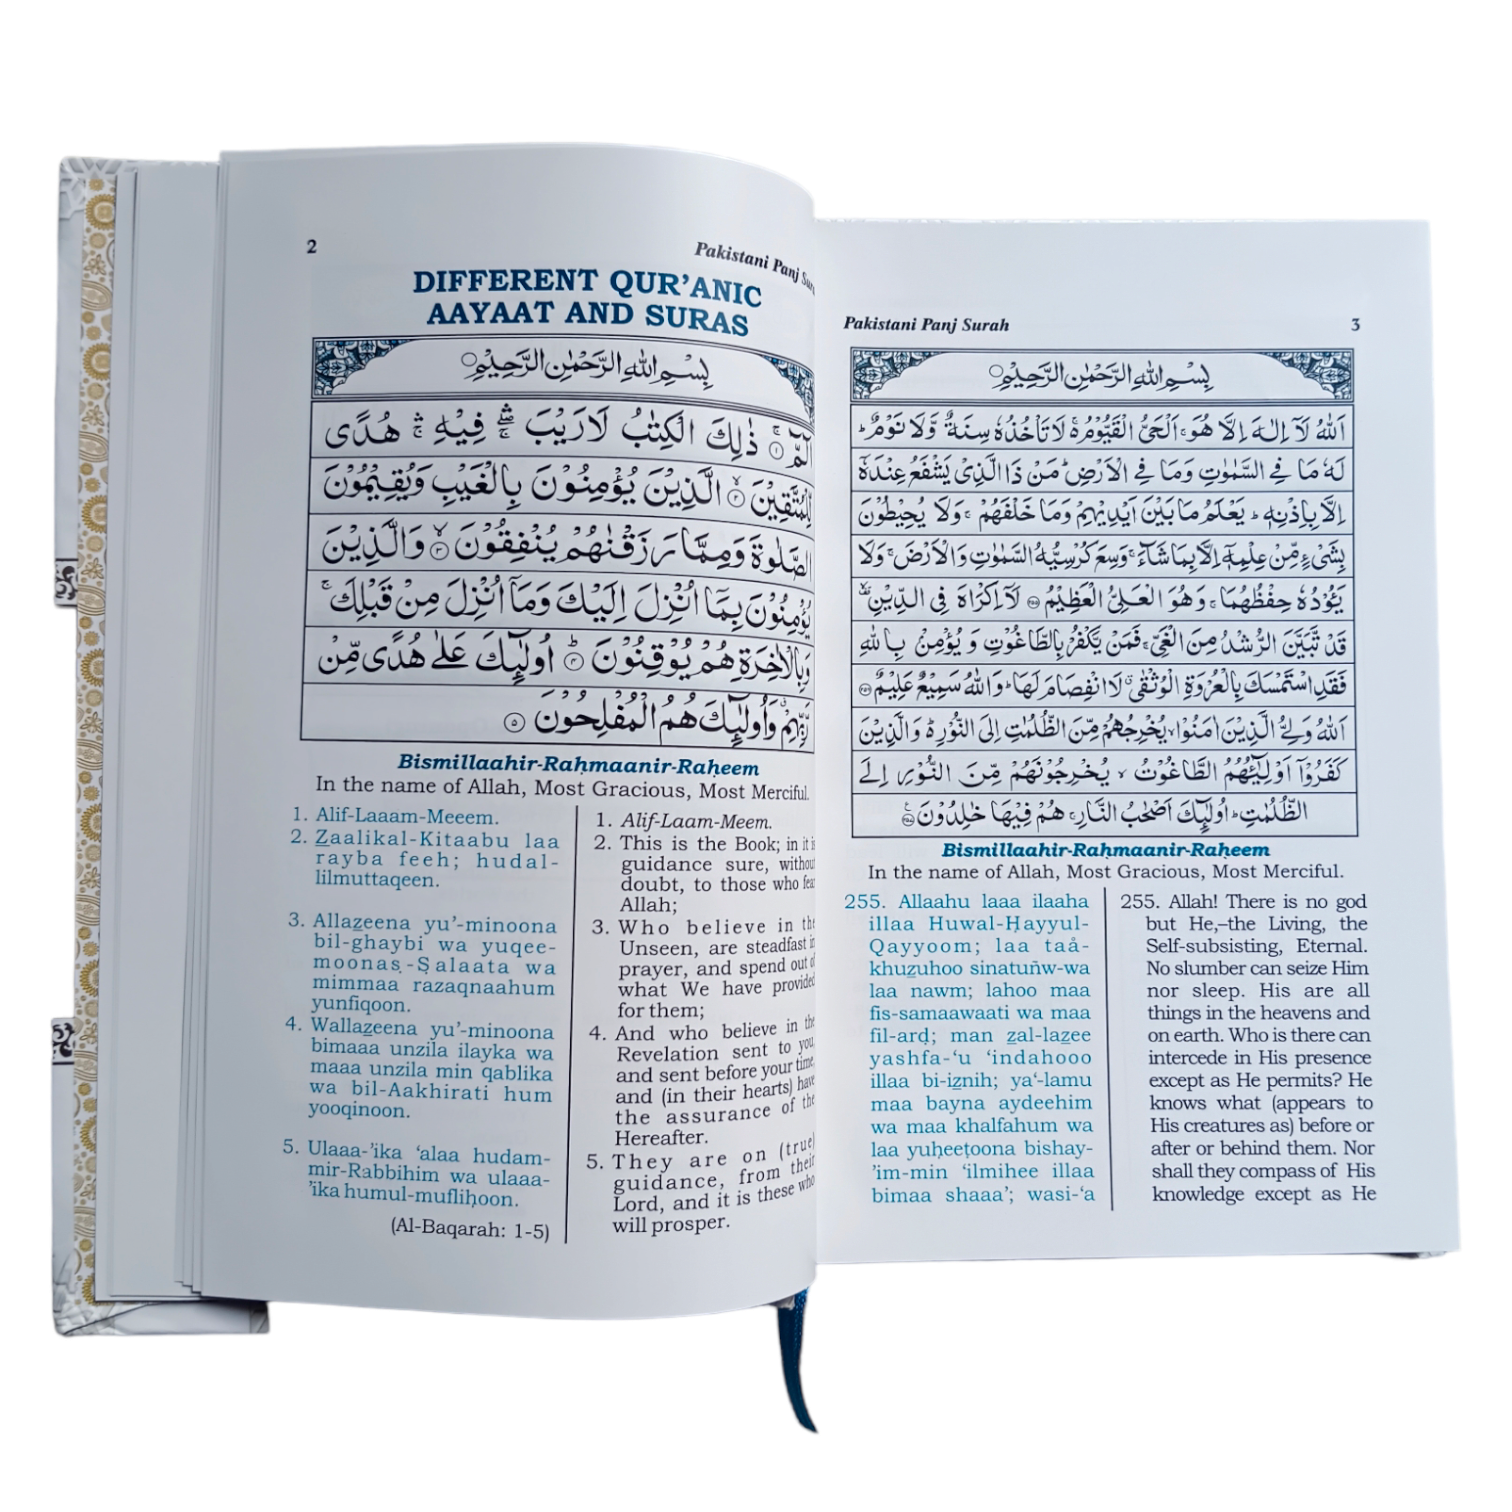 2
Pakistani Panj
DIFFERENT QUR’ANIC
AAYAAT AND SURAS
بِسْمِ اللهِ الرَّحْمٰنِ الرَّحِيْمِ
الٓمّٓ ۚ ۝١ ذٰلِكَ الْكِتٰبُ لَا رَيْبَ ۛۖ فِيْهِ ۛۚ هُدًى
لِّلْمُتَّقِيْنَ ۙ ۝٢ الَّذِيْنَ يُؤْمِنُوْنَ بِالْغَيْبِ وَيُقِيْمُوْنَ
الصَّلٰوةَ وَمِمَّا رَزَقْنٰهُمْ يُنْفِقُوْنَ ۙ ۝٣ وَالَّذِيْنَ
يُؤْمِنُوْنَ بِمَآ اُنْزِلَ اِلَيْكَ وَمَآ اُنْزِلَ مِنْ قَبْلِكَ ۚ
وَبِالْاٰخِرَةِ هُمْ يُوْقِنُوْنَ ؕ ۝٤ اُولٰٓئِكَ عَلٰى هُدًى مِّنْ
رَّبِّهِمْ ۗ وَاُولٰٓئِكَ هُمُ الْمُفْلِحُوْنَ ۝٥
Bismillaahir-Raḥmaanir-Raḥeem
In the name of Allah, Most Gracious, Most Merciful.
1. Alif-Laaam-Meeem.
2. Zaalikal-Kitaabu laa
rayba feeh; hudal-
lilmuttaqeen.
3. Allazeena yu’-minoona
bil-ghaybi wa yuqee-
moonaṣ-Ṣalaata wa
mimmaa razaqnaahum
yunfiqoon.
4. Wallazeena yu’-minoona
bimaaa unzila ilayka wa
maaa unzila min qablika
wa bil-Aakhirati hum
yooqinoon.
5. Ulaaa-’ika ‘alaa hudam-
mir-Rabbihim wa ulaaa-
’ika humul-mufliḥoon.
(Al-Baqarah: 1-5)
1. Alif-Laam-Meem.
2. This is the Book; in it is
guidance sure, without
doubt, to those who fear
Allah;
3. Who believe in the
Unseen, are steadfast in
prayer, and spend out of
what We have provided
for them;
4. And who believe in the
Revelation sent to you,
and sent before your time,
and (in their hearts) have
the assurance of the
Hereafter.
5. They are on (true)
guidance, from their
Lord, and it is these who
will prosper.
Pakistani Panj Surah
3
بِسْمِ اللهِ الرَّحْمٰنِ الرَّحِيْمِ
اَللّٰهُ لَآ اِلٰهَ اِلَّا هُوَ ۚ اَلْحَيُّ الْقَيُّوْمُ ۚ لَا تَاْخُذُهٗ سِنَةٌ وَّلَا نَوْمٌ ؕ
لَهٗ مَا فِي السَّمٰوٰتِ وَمَا فِي الْاَرْضِ ؕ مَنْ ذَا الَّذِيْ يَشْفَعُ عِنْدَهٗٓ
اِلَّا بِاِذْنِهٖ ؕ يَعْلَمُ مَا بَيْنَ اَيْدِيْهِمْ وَمَا خَلْفَهُمْ ۚ وَلَا يُحِيْطُوْنَ
بِشَيْءٍ مِّنْ عِلْمِهٖٓ اِلَّا بِمَا شَآءَ ۚ وَسِعَ كُرْسِيُّهُ السَّمٰوٰتِ وَالْاَرْضَ ۚ وَلَا
يَئُوْدُهٗ حِفْظُهُمَا ۚ وَهُوَ الْعَلِيُّ الْعَظِيْمُ ۝٢٥٥ لَآ اِكْرَاهَ فِي الدِّيْنِ ۙ
قَدْ تَّبَيَّنَ الرُّشْدُ مِنَ الْغَيِّ ۚ فَمَنْ يَّكْفُرْ بِالطَّاغُوْتِ وَ يُؤْمِنْۢ بِاللّٰهِ
فَقَدِ اسْتَمْسَكَ بِالْعُرْوَةِ الْوُثْقٰى ۗ لَا انْفِصَامَ لَهَا ؕ وَاللّٰهُ سَمِيْعٌ عَلِيْمٌ ۝٢٥٦
اَللّٰهُ وَلِيُّ الَّذِيْنَ اٰمَنُوْا ۙ يُخْرِجُهُمْ مِّنَ الظُّلُمٰتِ اِلَى النُّوْرِ ؕ وَالَّذِيْنَ
كَفَرُوْٓا اَوْلِيٰٓئُهُمُ الطَّاغُوْتُ ۙ يُخْرِجُوْنَهُمْ مِّنَ النُّوْرِ اِلَى
الظُّلُمٰتِ ؕ اُولٰٓئِكَ اَصْحٰبُ النَّارِ ۚ هُمْ فِيْهَا خٰلِدُوْنَ ۝٢٥٧
Bismillaahir-Raḥmaanir-Raḥeem
In the name of Allah, Most Gracious, Most Merciful.
255. Allaahu laaa ilaaha
illaa Huwal-Ḥayyul-
Qayyoom; laa taå-
khuzuhoo sinatuñw-wa
laa nawm; lahoo maa
fis-samaawaati wa maa
fil-arḍ; man zal-lazee
yashfa-‘u ‘indahooo
illaa bi-iznih; ya‘-lamu
maa bayna aydeehim
wa maa khalfahum wa
laa yuḥeeṭoona bishay-
’im-min ‘ilmihee illaa
bimaa shaaa’; wasi-‘a
255. Allah! There is no god
but He,–the Living, the
Self-subsisting, Eternal.
No slumber can seize Him
nor sleep. His are all
things in the heavens and
on earth. Who is there can
intercede in His presence
except as He permits? He
knows what (appears to
His creatures as) before or
after or behind them. Nor
shall they compass of His
knowledge except as He